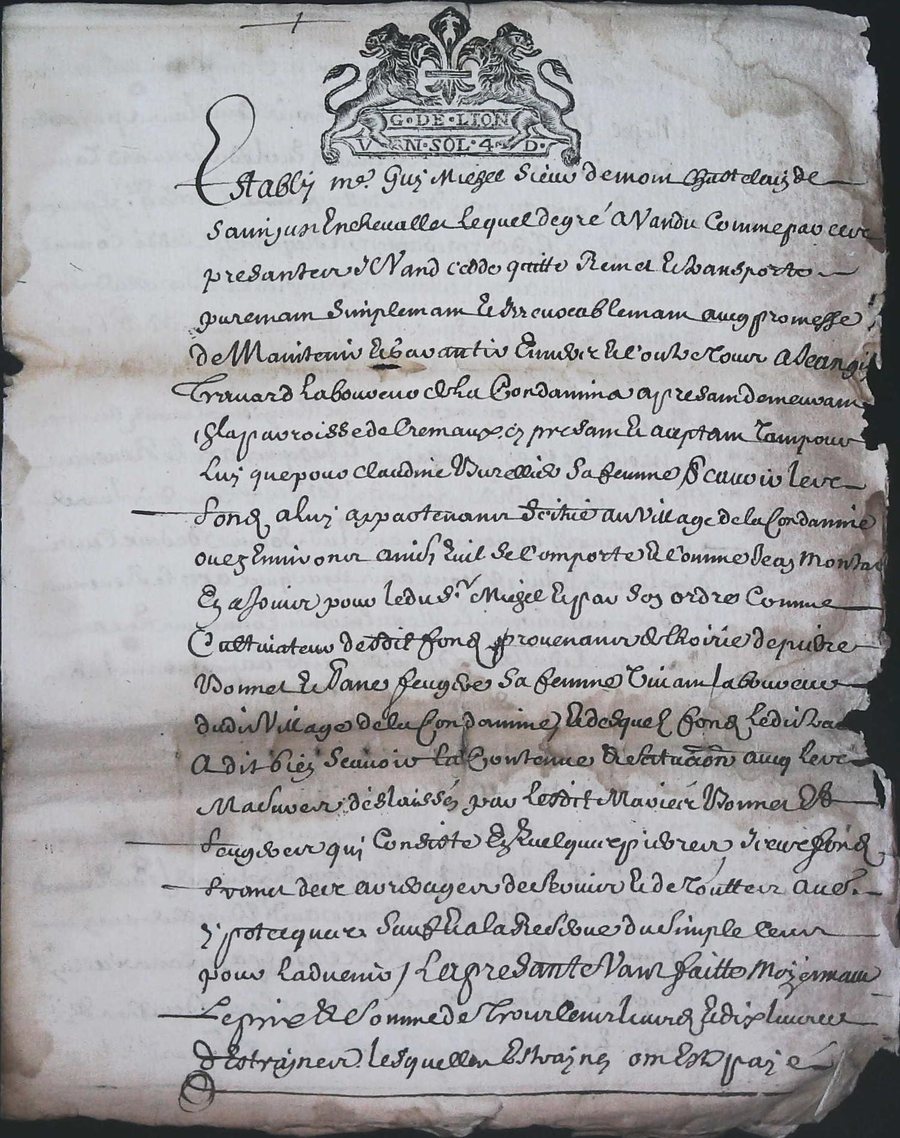 G·DE·LION
VN·SOL·4·D·
Estably me. Guy Michel Sieur demom Chastelain de
Sainjust Enchevallet Lequel degré a Vandu Comme par ces
presantes Vand cedde quitte Remet Et transporte
puremam Simplemam Et Irrevocablemam avecq promesse
de Maintenir Et Garantir Envers Et Contre Tous A
Laboureur de La Condamina apresam demeuram
parroisse de Cremaux, presam Et aceptam Tampour
Luy que pour Claudine Sa femme Scavoir Les
fondz a luy appartenans Scitué au Village de la Condamine
ou Es Environs ainsy Comporte Et Comme
En a Jouir pour ledit sr. Michel Et par Son ordre Comme
Cultivateur desdit fondz provenans de Lhoirie de pierre
Bonnet Et Jane feugere Sa femme Vivam laboureur
dudit Village de la Condamine, Et desquelz fondz Ledit
A dit bien Scavoir La Contenue Et scituaon avecq Les
Masures délaissés par Lesdit Mariés Bonnet Et
feugere qui Consiste En quelques pierres Iceux fondz
francz des arrérages de Servis Et de Toutes aues.
ypotecques Sauf Et a la Reserve du Simple Cens
pour Ladvenir / La presante Vante faitte Moyennant
Le prix Et Somme de Trois Cens livres Et dix livres
d'Estraines lesquelles Estraines om Esté payé